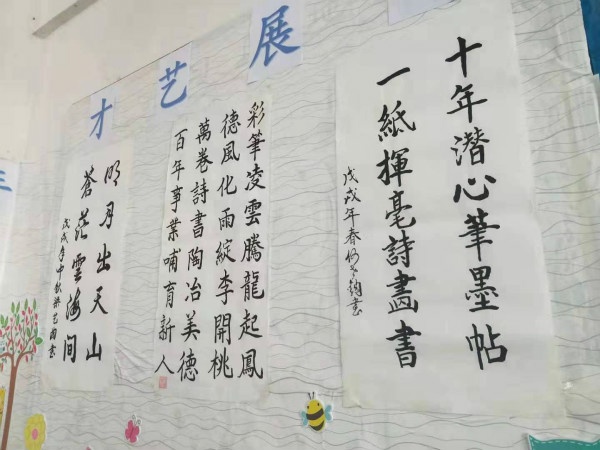 才艺展
十年潜心筆墨帖
一紙揮毫詩畫書
戊戌年春
彩筆凌雲騰龍起鳳
德風化雨綻李開桃
萬卷詩書陶冶美德
百年事業哺育新人
明月出天山
蒼茫雲海间
戊戌年中秋